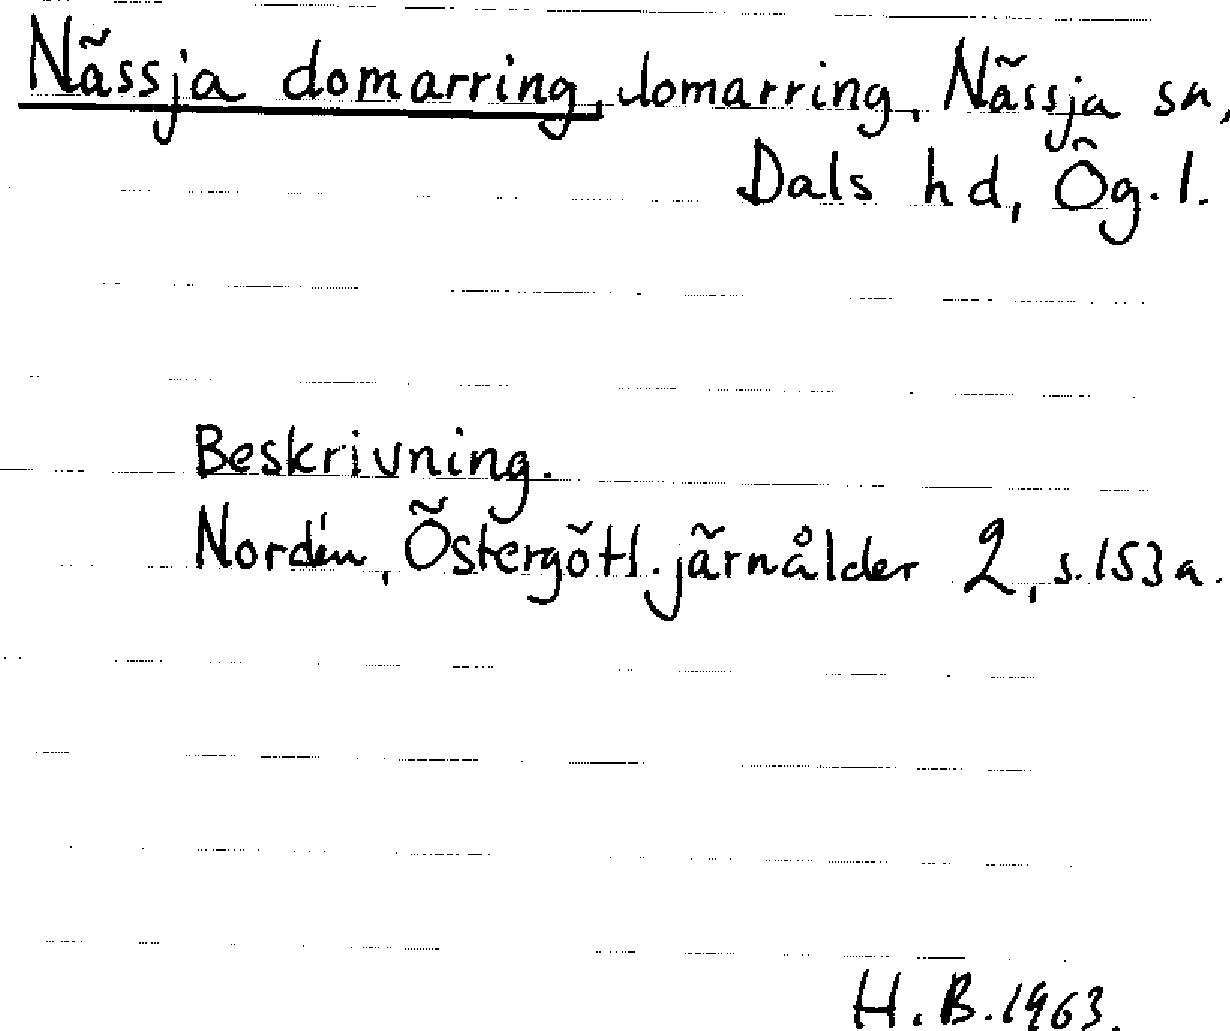 Nässja domarring, domarring, Nässja sn,
Dals hd, Ög. l.
Beskrivning.
Nordén, Östergötl. järnålder 2, s. 153 a.
H. B. 1963.